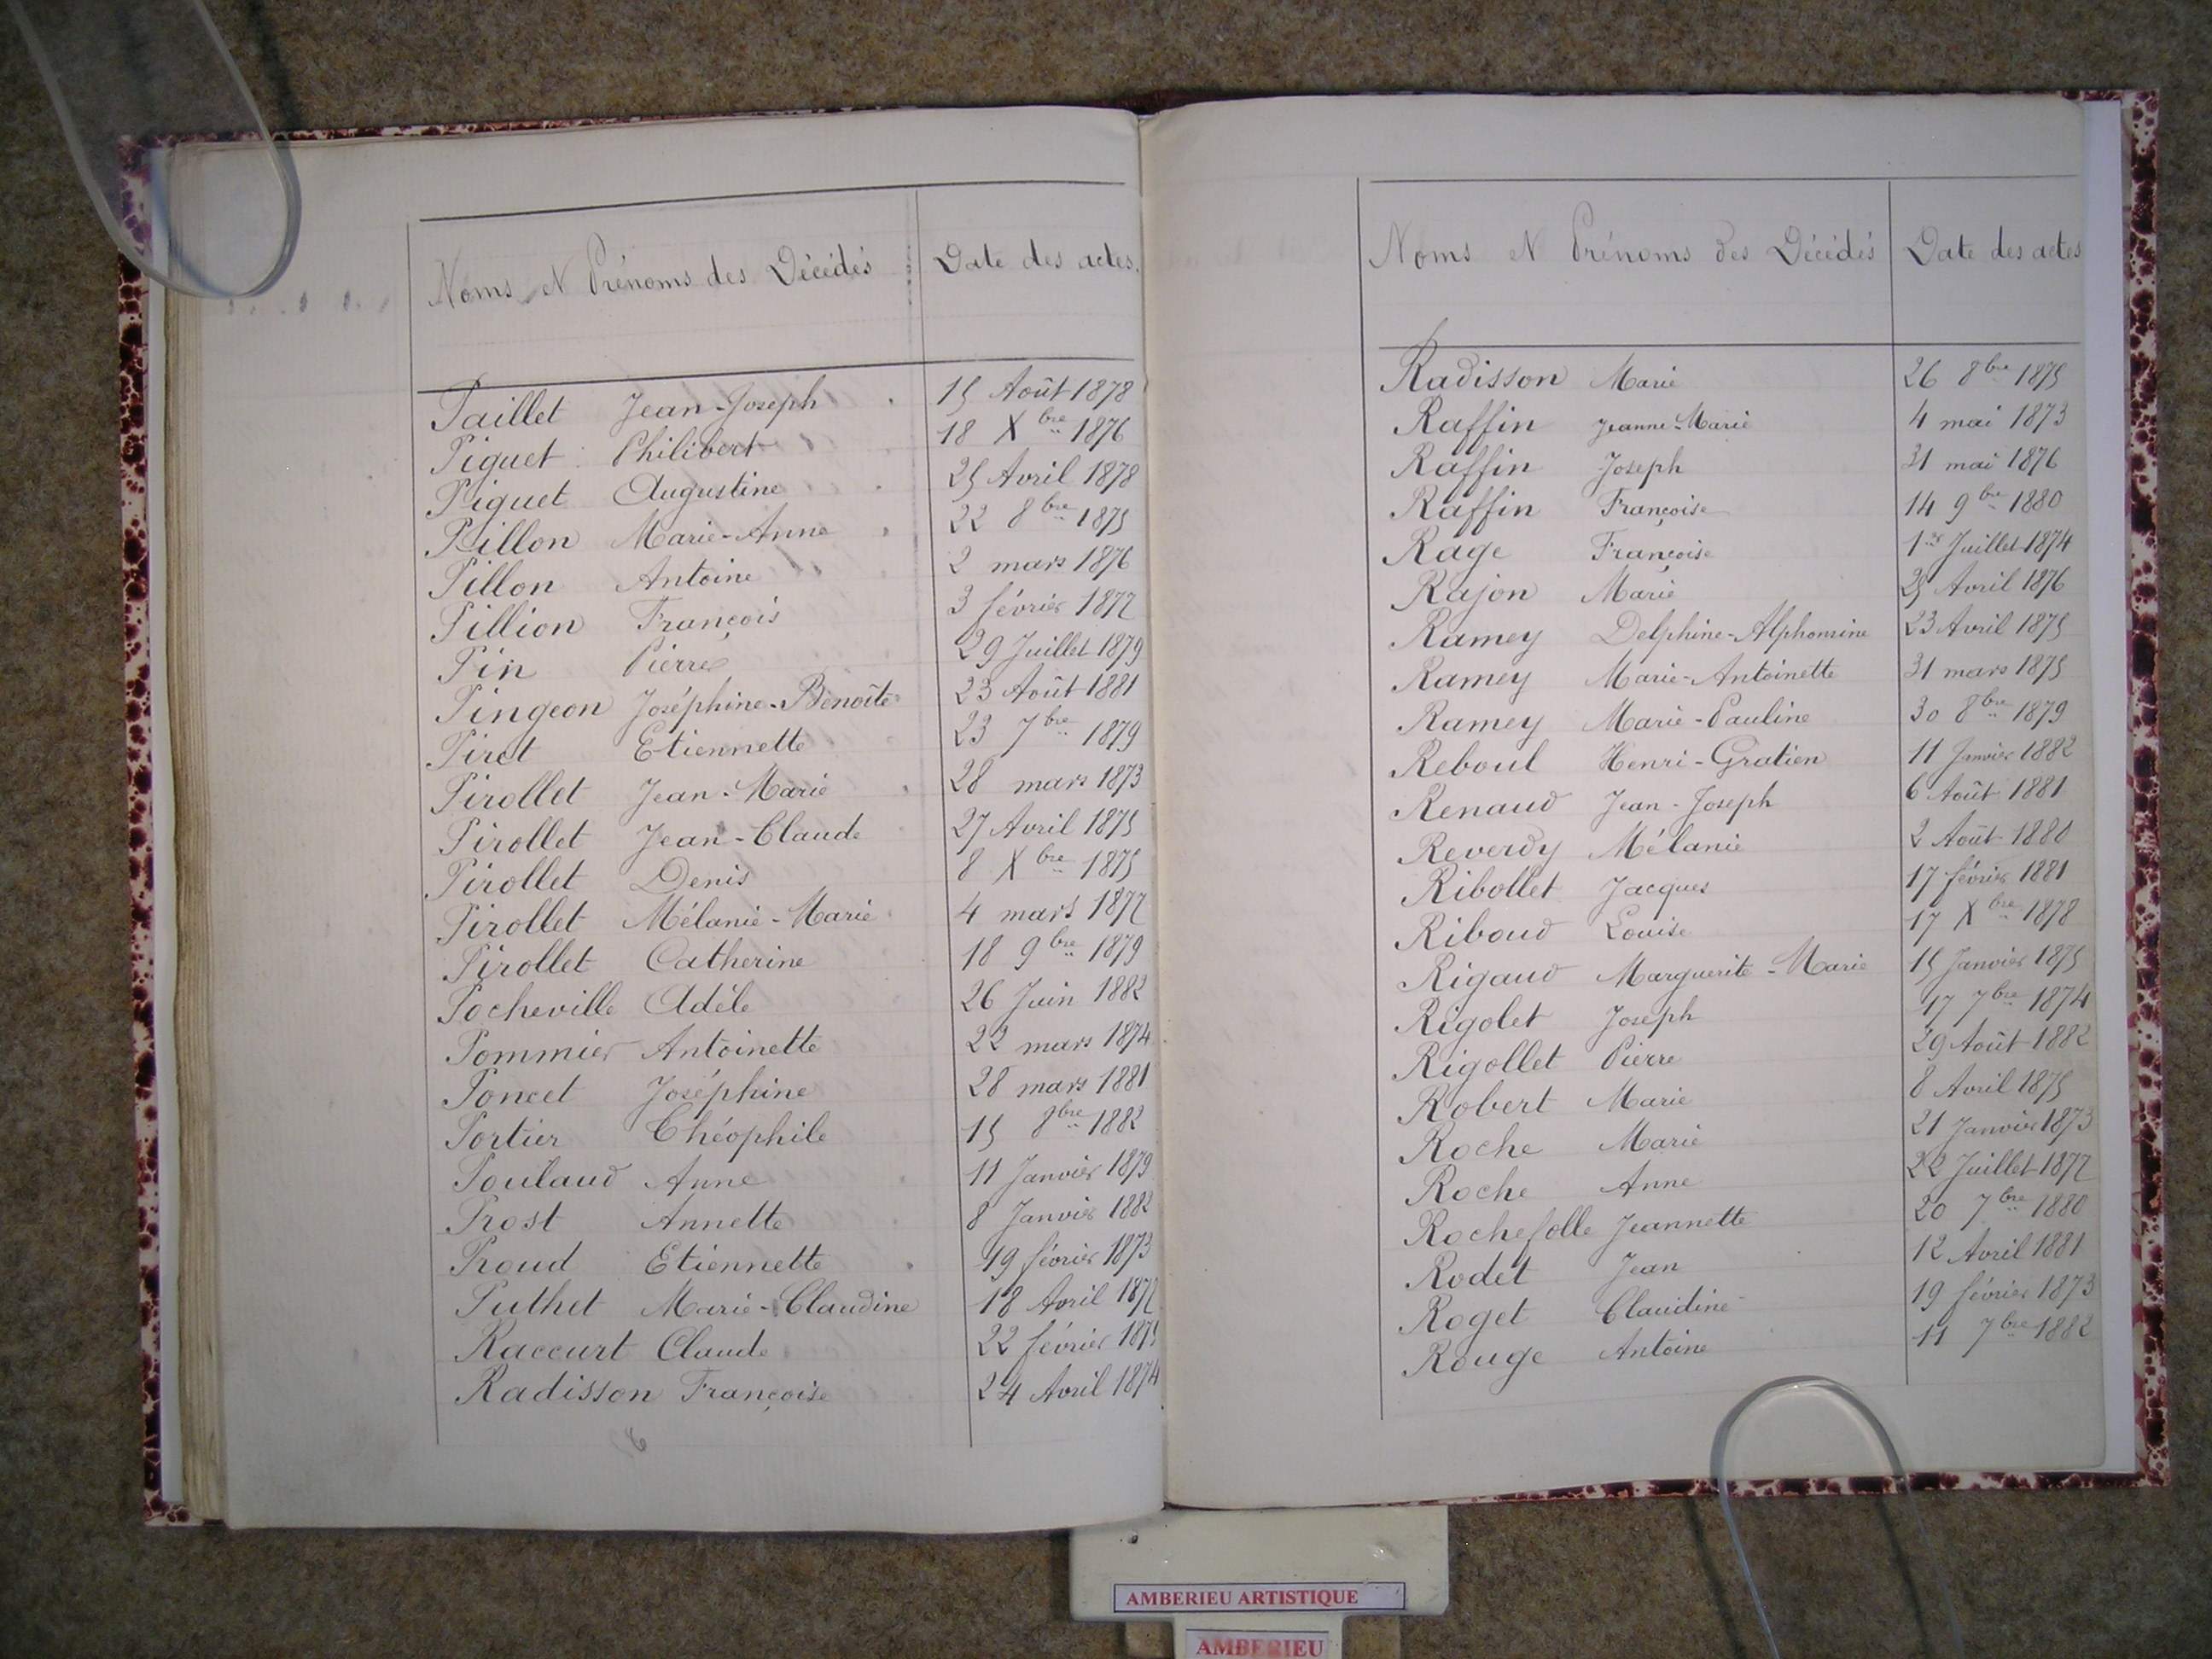 Noms & Prénoms des Décédés Date des actes.
Paillet Jean-Joseph 15 Août 1878
Piguet Philibert 18 Xbre 1876
Piguet Augustine 25 Avril 1878
Pillon Marie-Anne 22 8bre 1875
Pillon Antoine 2 mars 1876
Pillion François 3 février 1877
Pin Pierre 29 Juillet 1879
Pingeon Joséphine-Benoîte 23 Août 1881
Piret Etiennette 23 7bre 1879
Pirollet Jean-Marie 28 mars 1873
Pirollet Jean-Claude 27 Avril 1875
Pirollet Denis 8 Xbre 1875
Pirollet Mélanie-Marie 4 mars 1877
Pirollet Catherine 18 9bre 1879
Pocheville Adèle 26 Juin 1882
Pommier Antoinette 22 mars 1874
Poncet Joséphine 28 mars 1881
Portier Théophile 15 8bre 1882
Poulaud Anne 11 Janvier 1879
Prost Annette 8 Janvier 1882
Proud Etiennette 19 février 1873
Puthet Marie-Claudine 18 Avril 1877
Raccurt Claude 22 février 1875
Radisson Françoise 24 Avril 1874
Noms & Prénoms des Décédés Date des actes
Radisson Marie 26 8bre 1875
Raffin Jeanne-Marie 4 mai 1873
Raffin Joseph 31 mai 1876
Raffin Françoise 14 9bre 1880
Rage Françoise 1er Juillet 1874
Rajon Marie 25 Avril 1876
Ramey Delphine-Alphonsine 23 Avril 1875
Ramey Marie-Antoinette 31 mars 1875
Ramey Marie-Pauline 30 8bre 1879
Reboul Henri-Gratien 11 Janvier 1882
Renaud Jean-Joseph 6 Août 1881
Reverdy Mélanie 2 Août 1880
Ribollet Jacques 17 février 1881
Riboud Louise 17 Xbre 1878
Rigaud Marguerite-Marie 15 Janvier 1875
Rigolet Joseph 17 7bre 1874
Rigollet Pierre 29 Août 1882
Robert Marie 8 Avril 1875
Roche Marie 21 Janvier 1873
Roche Anne 22 Juillet 1877
Rochefolle Jeannette 20 7bre 1880
Rodet Jean 12 Avril 1881
Roget Claudine 19 février 1873
Rouge Antoine 11 7bre 1882
AMBERIEU ARTISTIQUE
AMBERIEU